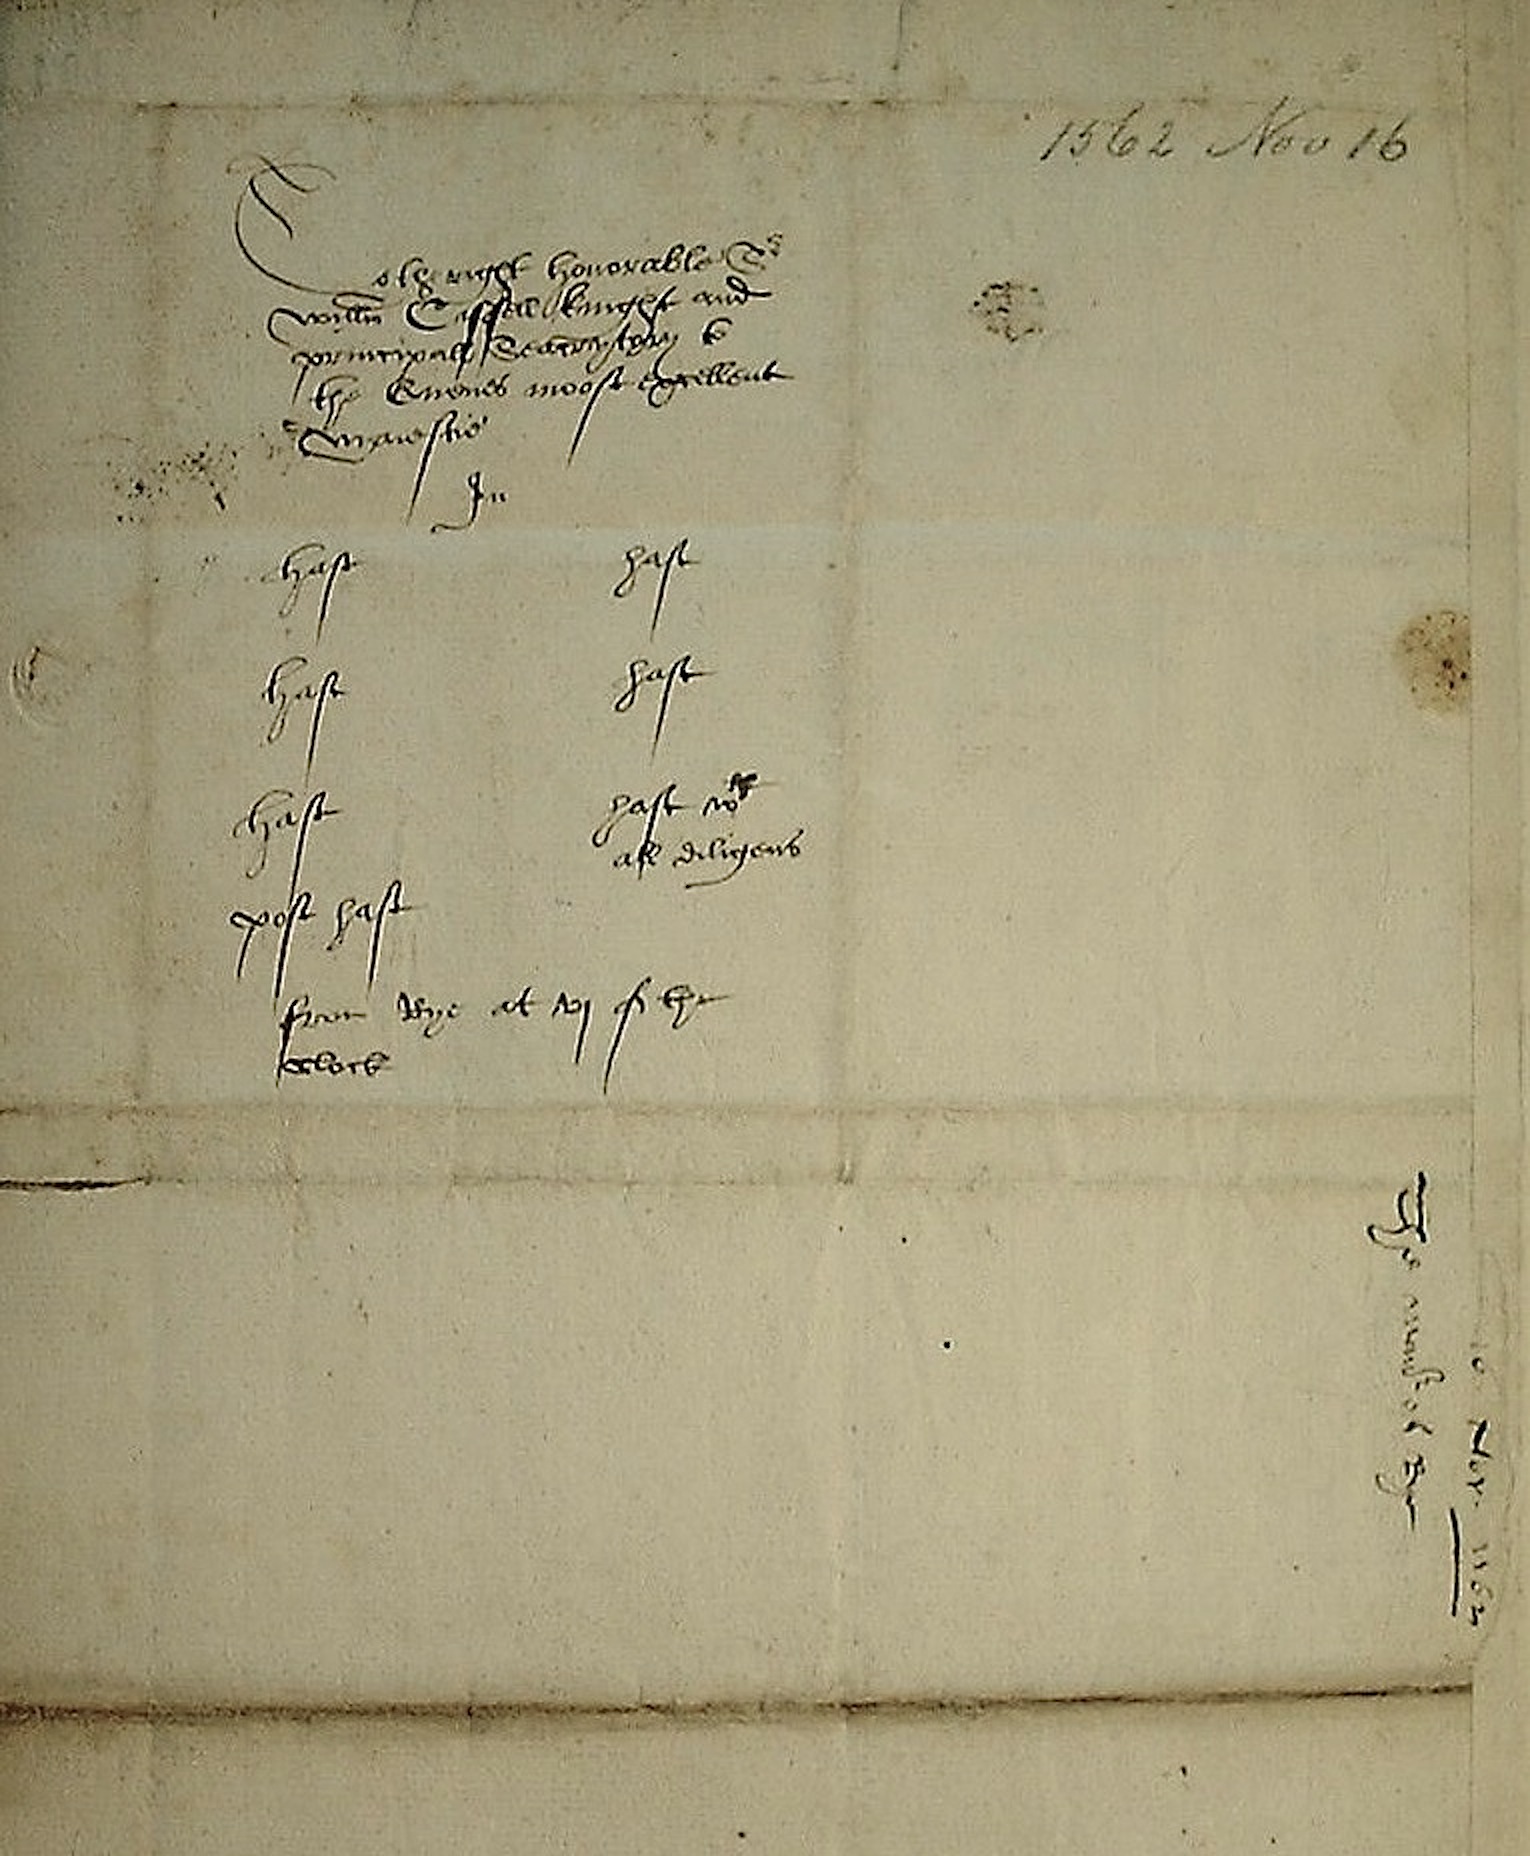 1562 Nov 16
To the right honorable Sr
Willm Cissell knight and
principall Seacrytory to
the Quenes moost excellent
Maiestie
In
hast hast
hast hast
hast hast wt
all diligens
post hast
from Rye at vj of the
clock
Nov. 1562
of Rye